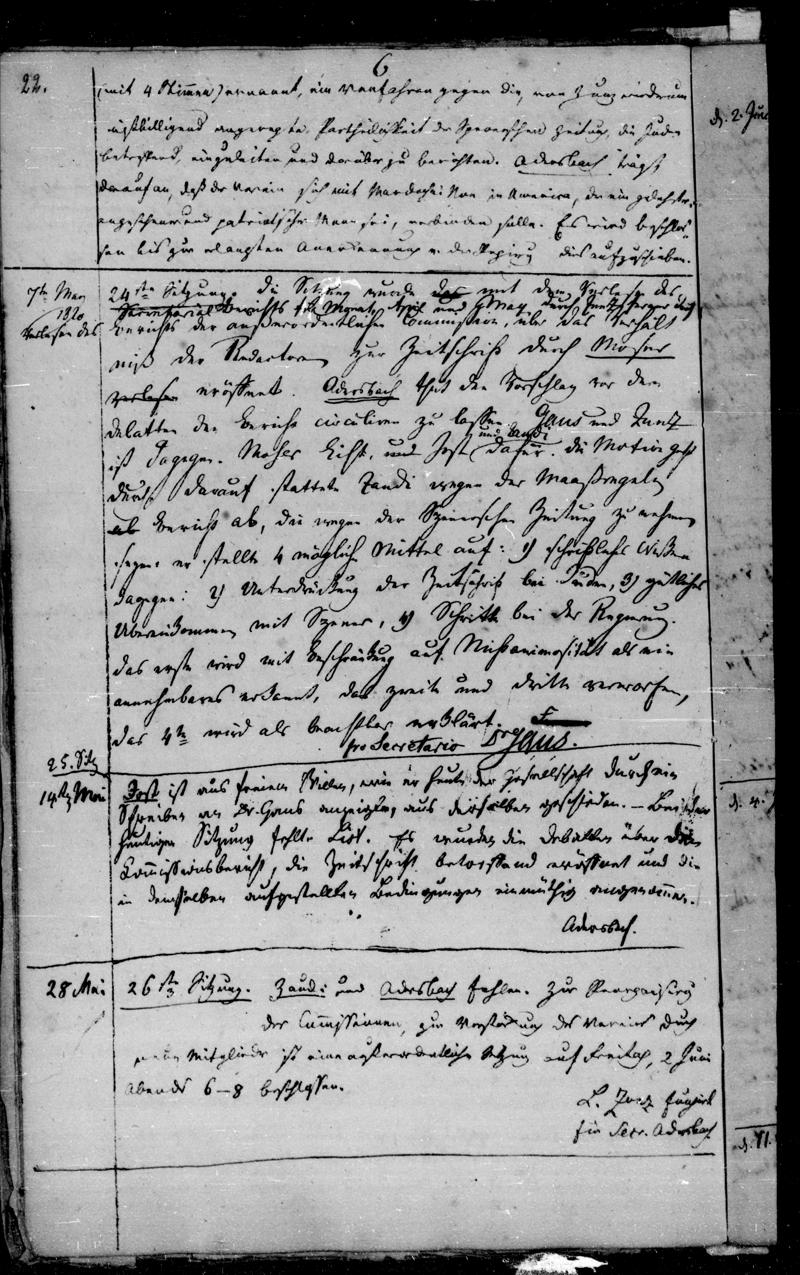 6
22.
(mit 4 Stimmen) ernannt, ein Verfahren gegen die, von Zunz wiederum
mißbilligend angeregte Partheilichkeit der Spenerschen Zeitung, die Juden
betreffend, einzuleiten und darüber zu berichten. Adersbach trägt
darauf an, daß der Verein sich mit Mardochai Noa in America, der ein gelehrter,
angesehener und patriotischer Mann sei, verbinden solle. Es wird beschlos-
sen bis zur erlangten Anerkennung v. der Regierung dies aufzuschieben.
7te May
1820
Verlesen des
24ste Sitzung. Die Sitzung wurde mit dem Verlesen des
Berichts der außerordentlichen Commission, über das Verhält
niß der Redactoren zur Zeitschrift durch Moser
verlesen eröffnet. Adersbach thut den Vorschlag vor dem
debatten den Bericht circuliren zu lassen. Gans und Zunz
ist dagegen. Moser List, und Jost und Zandi dafür. Die Motion geht
durch darauf stattete Zandi wegen der Maaßregeln
ab Bericht ab, die wegen der Spenerschen Zeitung zu nehmen
seyen er stellte 4 mögliche Mittel auf: 1) schriftliches Wirken
dagegen: 2) Unterdrückung der Zeitschrift bei Juden, 3) gütliches
Übereinkommen mit Spener, 4) Schritte bei der Regierung.
das erste wird mit Beschränkung auf Nichtanimosität als ein
annehmbares erkannt, das zweite und dritte verworfen,
das 4te wird als beachtbar erklärt.
pro Secretario Dr Gans.
25. Sitz
14ten Mai
Jost ist aus freiem Willen, wie er heute der Gesellschaft durch ein
Schreiben an Dr. Gans anzeigte, aus derselben geschieden. – Bei der
heutigen Sitzung fehlte List. Es wurden die Debatten über den
Commissionsbericht, die Zeitschrift betreffend eröffnet und die
in demselben aufgestellten Bedingungen einmüthig angenommen.
Adersbach.
28 Mai
26ste Sitzung. Zandi und Adersbach fehlen. Zur Reorganisirung
der Commissionen, zur Verstärkung des Vereins durch
neue Mitglieder ist eine außerordentliche Sitzung auf Freitag, 2 Juni
Abends 6–8 beschlossen.
L. Zunz fungirt
für Secr. Adersbach
d. 2. Juni
d. 4.
d. 11.